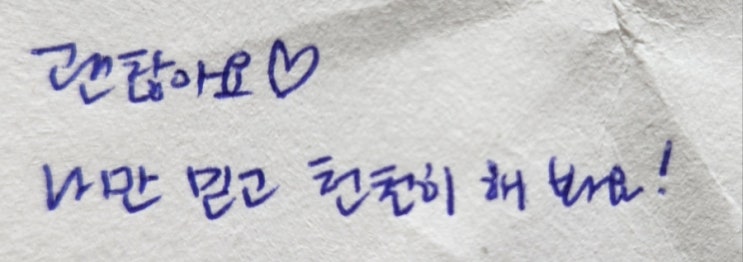 괜찮아요♡
나만 믿고 천천히 해 봐요!